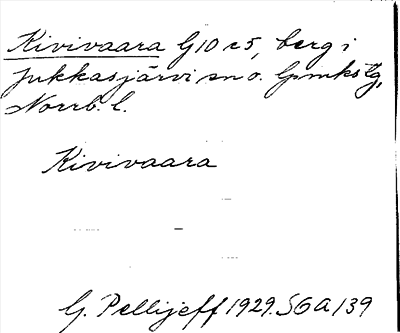 Kivivaara G10 c5, berg i
Jukkasjärvi sn o. lpmkstg,
Norrb. l.
Kivivaara
G. Pellijeff 1929. SOA 139